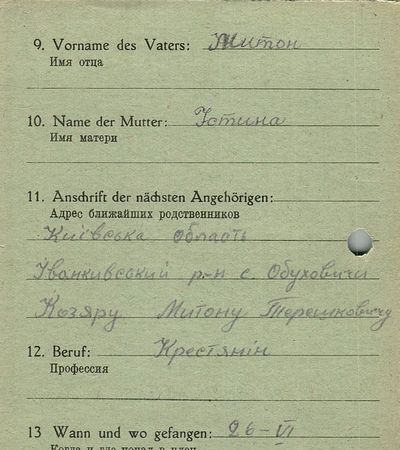 9. Vorname des Vaters: Митон
Имя отца
10. Name der Mutter: Устина
Имя матери
11. Anschrift der nächsten Angehörigen:
Адрес ближайших родственников
Київська область
Іванківський р-н с. Обуховичи
Козяру Митону Терешковичу
12. Beruf: Крестянін
Профессия
13 Wann und wo gefangen: 26-VI
Когда и где попал в плен